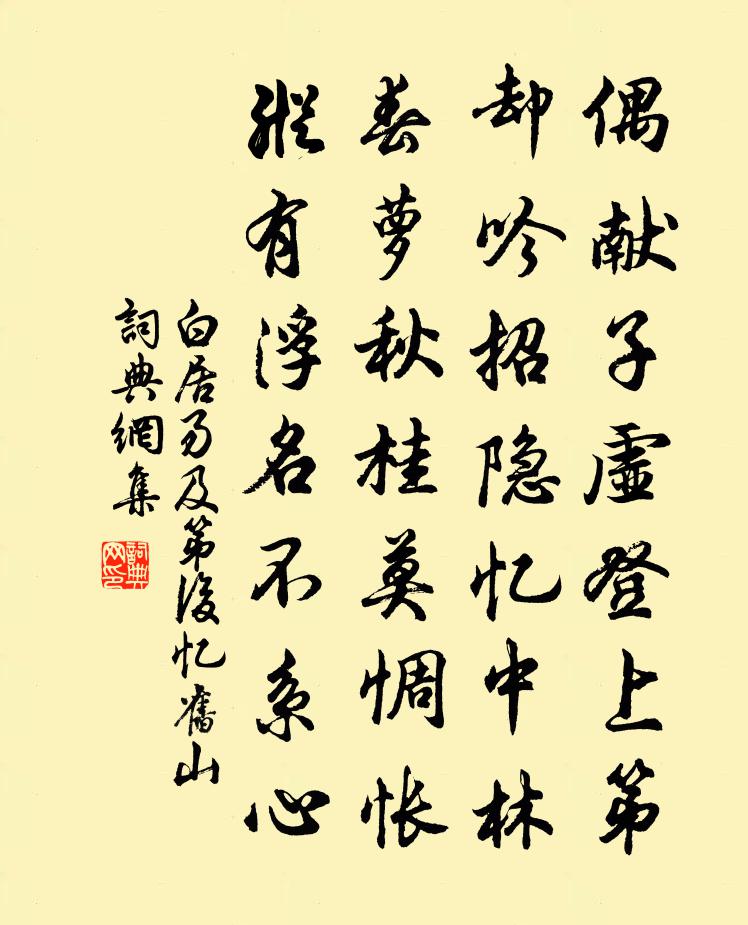 偶献子虚登上第
却吟招隐忆中林
春萝秋桂莫惆怅
縱有浮名不系心
白居易及第後忆舊山
詞典網集
詞典网印